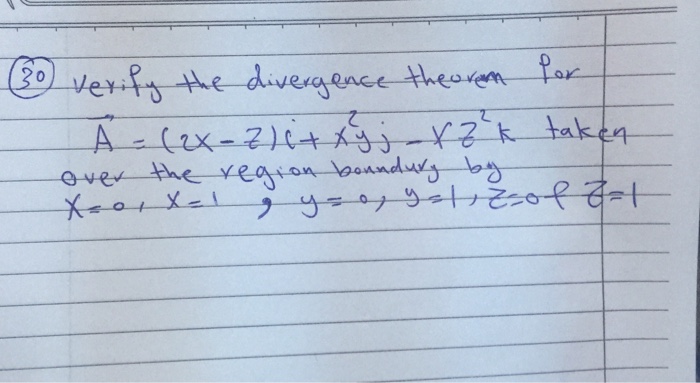 30 verify the divergence theorem for
A⃗ = (2x - z)i + x²yj - xz²k taken
over the region boundury by
x=0, x=1 , y=0, y=1, z=0 & z=1